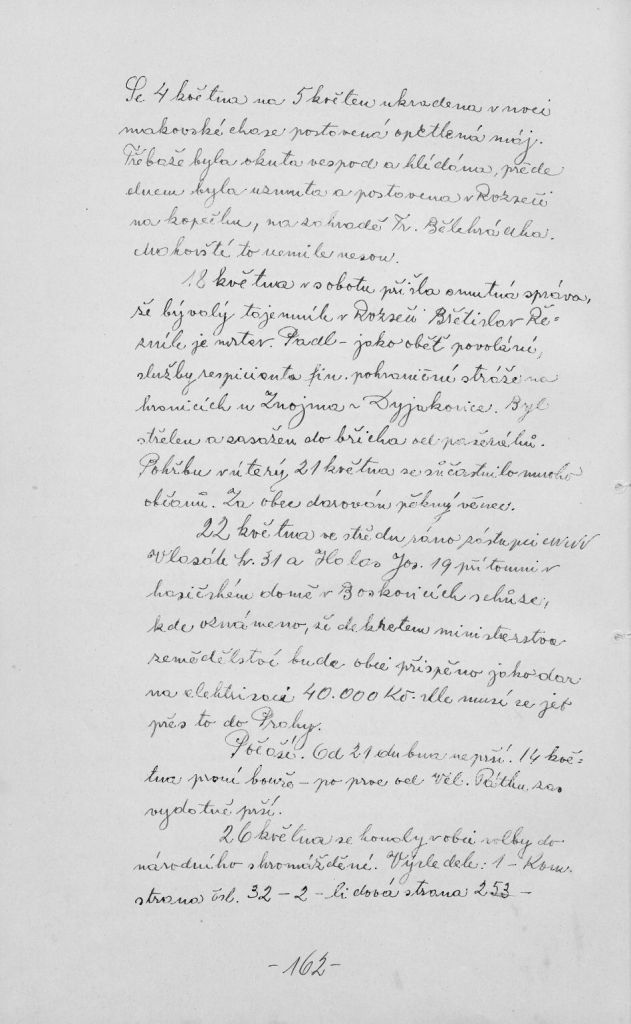 Se 4 května na 5 květen ukradena v noci
makovské chase postavená opětlená máj.
Třebaže byla okuta vespod a hlídána, přede
dnem byla uzmuta a postavena v Rozseči
na kopečku, na zahradě Fr. Bělehrádka.
Makovští to nemile nesou.
18 května v sobotu přišla smutná zpráva,
že bývalý tajemník v Rozseči Břetislav Ře-
zník je mrtev. Padl - jako oběť povolání,
služby respicienta fin. pohraniční stráže na
hranicích u Znojma v Dyjakovice. Byl
střelen a zasažen do břicha od pašeráků.
Pohřbu v úterý, 21 května se súčastnilo mnoho
občanů. Za obec darován pěkný věnec.
22 května ve středu ráno zástupci
Vlasák Fr. 31 a Halas Jos. 19 přítomni v
hasičském domě v Boskovicích schůze,
kde oznámeno, že dekretem ministerstva
zemědělství bude obci přispěno jako dar
na elektrisaci 40.000 Kč. Ale musí se jet
přes to do Prahy.
Počasí. Od 21 dubna neprší. 14 kvě-
tna první bouře - po prve od Vel. Pátku zas
vydatně prší.
26 května se konaly v obci volby do
národního shromáždění. Výsledek: 1 - Kom.
strana čsl. 32 - 2 - lidová strana 253 -
-162-